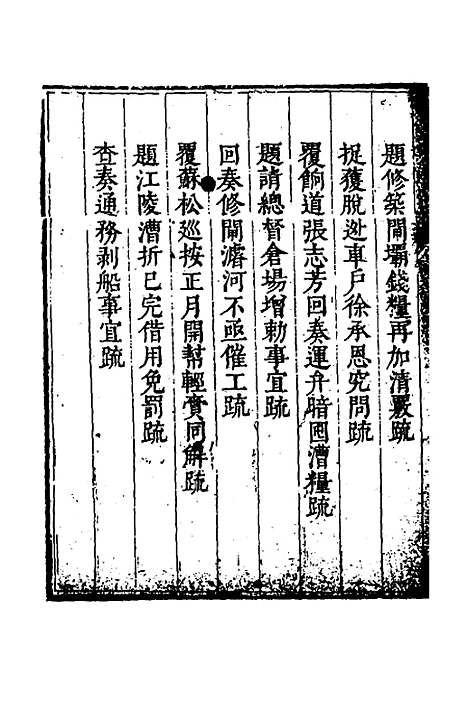 題修築閘壩錢糧再加清覈疏
捉獲脫逃車戶徐承恩究問疏
覆餉道張志芳回奏運弁暗囤漕糧疏
題請總督倉場增勅事宜疏
回奏修閘濬河不亟催工疏
覆蘇松巡按正月開幫輕賫同解疏
題江陵漕折已完借用免罰疏
查奏通務剥船事宜疏